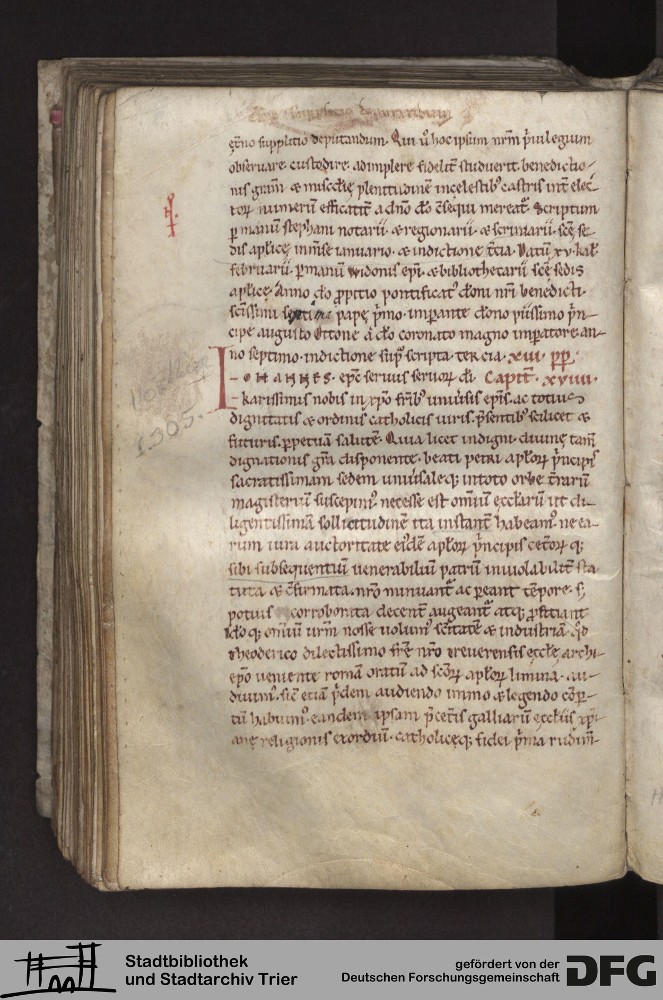 ęt̄no supplitio deputandum. Qui ū hoc ipsum nr̄m p̄uilegium
obseruare. custodire. adimplere fidelit̄ studuerit. benedictio
nis grām & misc̄dię plenitudinē in celestib; castris int̄ elec
torꝝ numerū efficatit̄ a dn̄o dō c̄sequi mereat̄. Scriptum
p manum stephani notarii & regionarii & scriniarii sc̄ę se
dis apl̄icę in m̄se ianuario. & indictione t̄cia. Datū. xv. kal̄.
februarii. p manū widonis ep̄i. & bibliothecarii sc̄ę sedis
apl̄icę. Anno dō p̄pitio pontificat; dōni nr̄i benedicti.
sc̄issimi septimi papę p̄mo. inperante dōno piissimo p̄n
cipe augusto Ottone a dō coronato magno inperatore. an
no septimo. indictione sup̄ scripta tercia. XIII. PP.
IOHANNES. ep̄c seruus seruorꝝ dī Capit̄. XVIIII.
karissimis nobis in xp̄o fr̄ib; uniūsis ep̄is. ac totius
dignitatis & ordinis catholicis uiris. p̄sentib; scilicet &
futuris. p̄petuā salutē. Quia licet indigni. diuinę tam̄
dignationis gr̄a disponente. beati petri apl̄orꝝ p̄ncipis
sacratissimam sedem uniūsaleq; in toto orbe t̄rarū
magisteriū suscepim;. necesse est omniū ecclārū ut di
ligentissimā sollicitudinē ita instant̄ habeam;. ne ea
rum iura auctoritate eidē apl̄orꝝ p̄ncipis cet̄orꝝ q;
sibi subsequentiū uenerabiliū patrū inuiolabilit̄ sta
tuta & c̄firmata. nr̄o minuant̄ ac pereant t̄empore. s;
potius corroborata decent̄ augeant̄ atq; p̄ficiant
Idōq; omniū ur̄m nosse uolum; sc̄itatē & industriā. qd̄
theoderico dilectissimo fr̄e nr̄o treuerensis ecclę archi
ep̄o ueniente romā oratū ad sc̄orꝝ apl̄orꝝ limina. au
diuim;. sic̄ etiā p̄dem audiendo immo & legendo c̄per
tū habuim;. eandem ipsam p̄ cet̄is galliarū ecclīis xp̄i
anę religionis exordiū. catholicęq; fidei p̄ma rudim̄
1305.
Stadtbibliothek
und Stadtarchiv Trier
gefördert von der
Deutschen Forschungsgemeinschaft
DFG